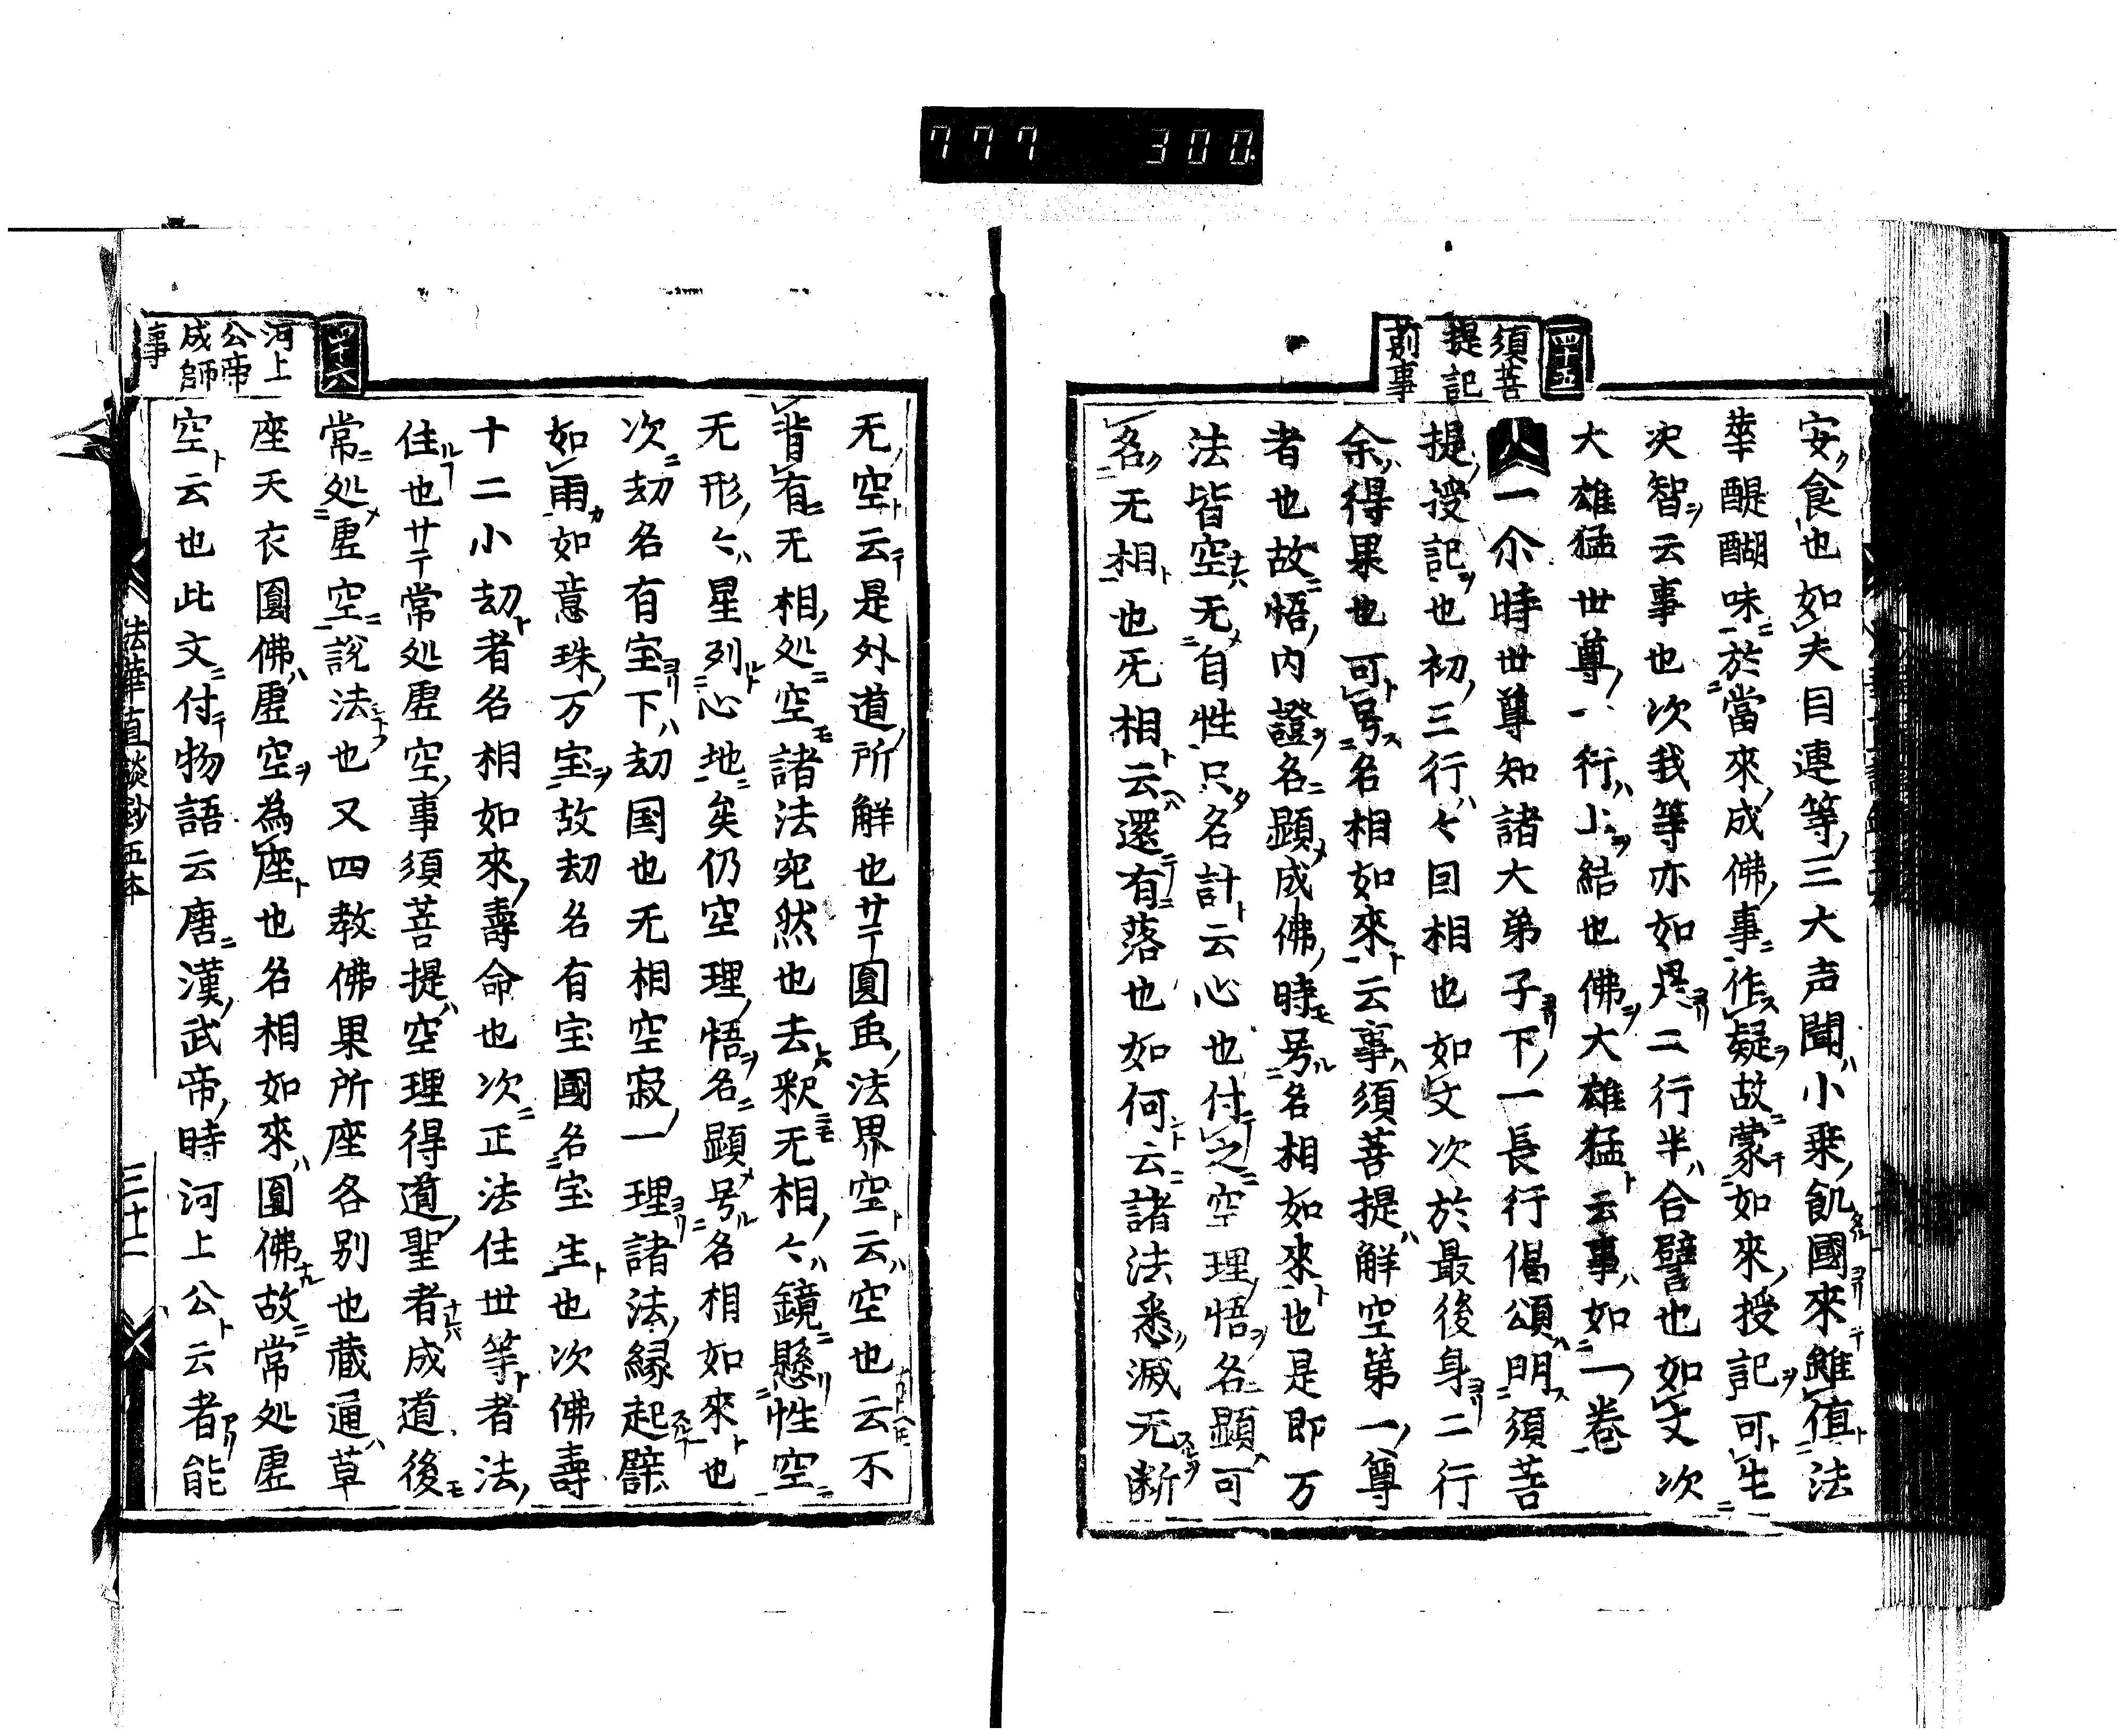 777 300
四十五
須菩
提記
莂事
安食也如夫目連等三大声聞小乗飢國來雖値法
華醍醐味於當來成佛事作疑故蒙如來授記可生
次智云事也次我等亦如是二行半合譬也如文次
大雄猛世尊一行小結也佛大雄猛云事如一卷
一尒時世尊知諸大弟子下一長行偈頌明須菩
提授記也初三行々因相也如文次於最後身二行
余得果也可号名相如來云事須菩提解空第一尊
者也故悟内證名顕成佛時号名相如來也是即万
法皆空无自性只名計云心也付之空理悟名顕可
名无相也旡相云還有落也如何云諸法悉滅无断
四十六
河上
公帝
成師
事
无空云是外道所解也サテ圓乕法界空云空也云不
背有无相処空諸法宛然也去釈无相々鏡懸性空
无形々星列心地矣仍空理悟名顕号名相如來也
次劫名有宝下劫国也无相空寂一理諸法縁起譬
如雨如意珠万宝故劫名有宝國名宝生也次佛壽
十二小劫者名相如來壽命也次正法住世等者法
住也サテ常処虚空事須菩提空理得道聖者成道後
常処虚空説法也又四教佛果所座各別也蔵通草
座天衣圓佛虚空為座也名相如來圓佛故常処虚
空云也此文付物語云唐漢武帝時河上公云者能
法華直談鈔五本
三十二